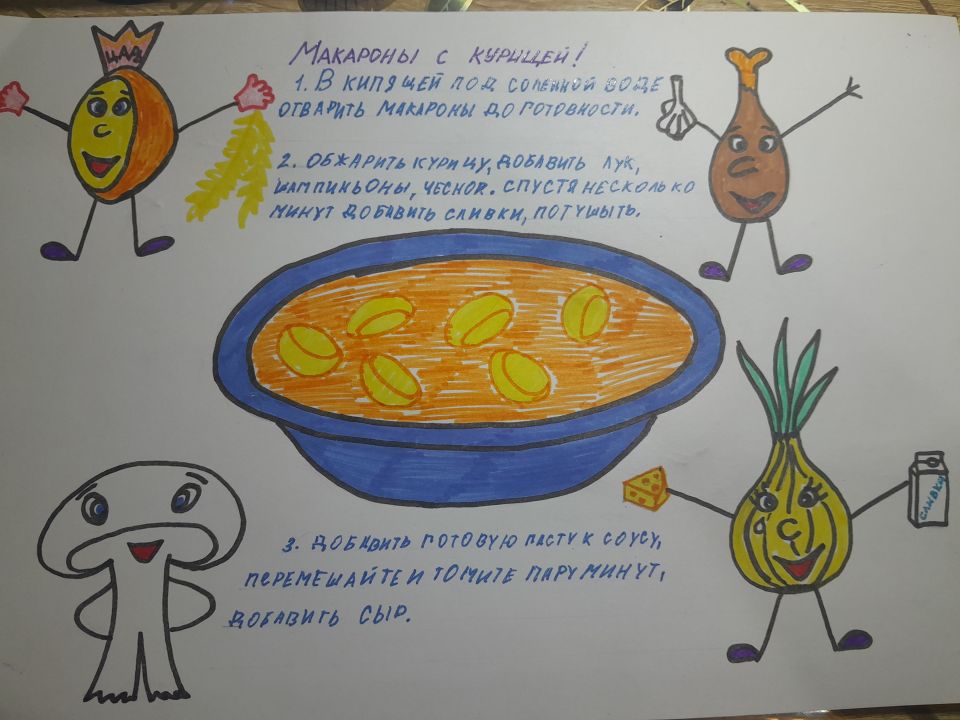 ЦАРЬ
МАКАРОНЫ С КУРИЦЕЙ!
1. В КИПЯЩЕЙ ПОД СОЛЕННОЙ ВОДЕ
ОТВАРИТЬ МАКАРОНЫ ДО ГОТОВНОСТИ.
2. ОБЖАРИТЬ КУРИЦУ, ДОБАВИТЬ ЛУК,
ШАМПИНЬОНЫ, ЧЕСНОК. СПУСТЯ НЕСКОЛЬКО
МИНУТ ДОБАВИТЬ СЛИВКИ, ПОТУШЫТЬ.
СЛИВКИ
3. ДОБАВИТЬ ГОТОВУЮ ПАСТУ К СОУСУ,
ПЕРЕМЕШАЙТЕ И ТОМИТЕ ПАРУ МИНУТ,
ДОБАВИТЬ СЫР.